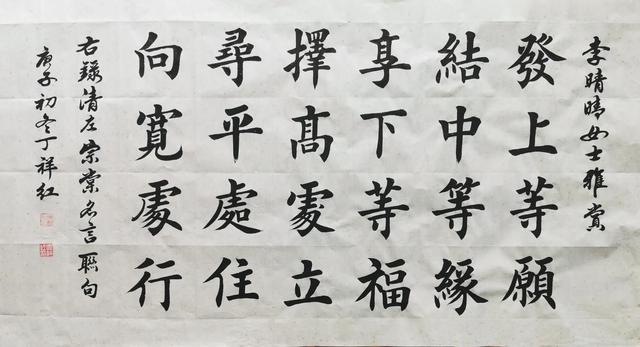 李晴晴女士雅赏
發上等願
結中等緣
享下等福
擇髙處立
尋平處住
向寬處行
右錄清左宗棠名言聯句
庚子初冬丁祥红